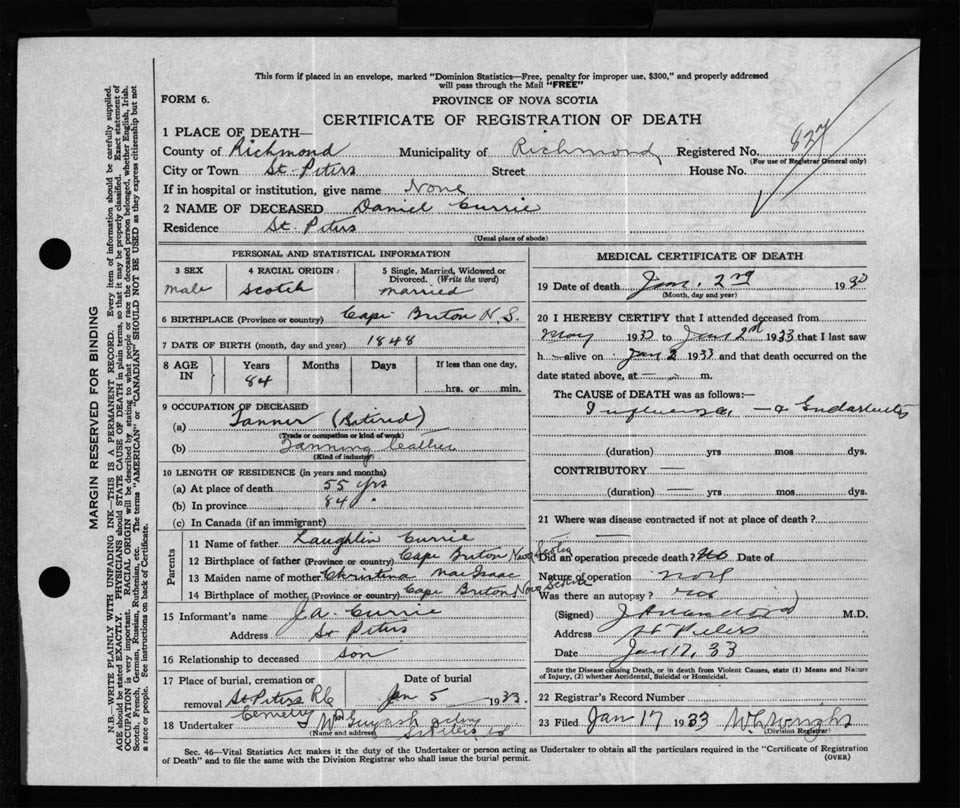 This form if placed in an envelope, marked "Dominion Statistics—Free, penalty for improper use, $300," and properly addressed
will pass through the Mail "FREE"
FORM 6.
PROVINCE OF NOVA SCOTIA
CERTIFICATE OF REGISTRATION OF DEATH
827
1 PLACE OF DEATH—
County of Richmond Municipality of Richmond Registered No.
(For use of Registrar General only)
City or Town St. Peters Street House No.
If in hospital or institution, give name None
2 NAME OF DECEASED Daniel Currie
Residence St. Peters
(Usual place of abode)
PERSONAL AND STATISTICAL INFORMATION
3 SEX 4 RACIAL ORIGIN: 5 Single, Married, Widowed or
Divorced. (Write the word)
male Scotch married
6 BIRTHPLACE (Province or country) Cape Briton N.S.
7 DATE OF BIRTH (month, day and year) 1848
8 AGE IN Years Months Days If less than one day,
84 hrs. or min.
9 OCCUPATION OF DECEASED
(a) Tanner (Retired)
(Trade or occupation or kind of work)
(b) Tanning Leather
(Kind of industry)
10 LENGTH OF RESIDENCE (in years and months)
(a) At place of death 55 yrs
(b) In province 84 "
(c) In Canada (if an immigrant)
Parents
11 Name of father Laughlin Currie
12 Birthplace of father (Province or country) Cape Briton Nova Scotia
13 Maiden name of mother Christina MacIsaac
14 Birthplace of mother (Province or country) Cape Briton Nova Scotia
15 Informant's name J.A. Currie
Address St Peters
16 Relationship to deceased son
17 Place of burial, cremation or Date of burial
removal St Peters R.C. Jan 5 1933
Cemetery
18 Undertaker
(Name and address)
MEDICAL CERTIFICATE OF DEATH
19 Date of death Jan. 2nd 1930
(Month, day and year)
20 I HEREBY CERTIFY that I attended deceased from
May 1930 to Jan 2nd 1933 that I last saw
h alive on Jan 2 1933 and that death occurred on
the date stated above, at — m.
The CAUSE of DEATH was as follows:—
Influenza
(duration) yrs mos dys.
CONTRIBUTORY —
(duration) — yrs mos dys.
21 Where was disease contracted if not at place of death?
Did an operation precede death? No Date of
Nature of operation none
Was there an autopsy? no
(Signed) M.D.
Address St Peters
Date Jan 17, 33
State the Disease causing Death, or in death from Violent Causes, state (1) Means and Nature
of Injury, (2) whether Accidental, Suicidal or Homicidal.
22 Registrar's Record Number
23 Filed Jan 17 1933
(Division Registrar)
Sec. 46—Vital Statistics Act makes it the duty of the Undertaker or person acting as Undertaker to obtain all the particulars required in the "Certificate of Registration
of Death" and to file the same with the Division Registrar who shall issue the burial permit.
(OVER)
MARGIN RESERVED FOR BINDING
N.B.—WRITE PLAINLY WITH UNFADING INK—THIS IS A PERMANENT RECORD. Every item of information should be carefully supplied.
AGE should be stated EXACTLY. PHYSICIANS should STATE CAUSE OF DEATH in plain terms, so that it may be properly classified. Exact statement of
OCCUPATION is very important. RACIAL ORIGIN will be described by stating to what people or race the deceased person belonged, whether English, Irish,
Scotch, French, German, Russian, Ruthenian, etc. The terms "AMERICAN" or "CANADIAN" SHOULD NOT BE USED as they express citizenship but not
a race or people. See instructions on back of Certificate.